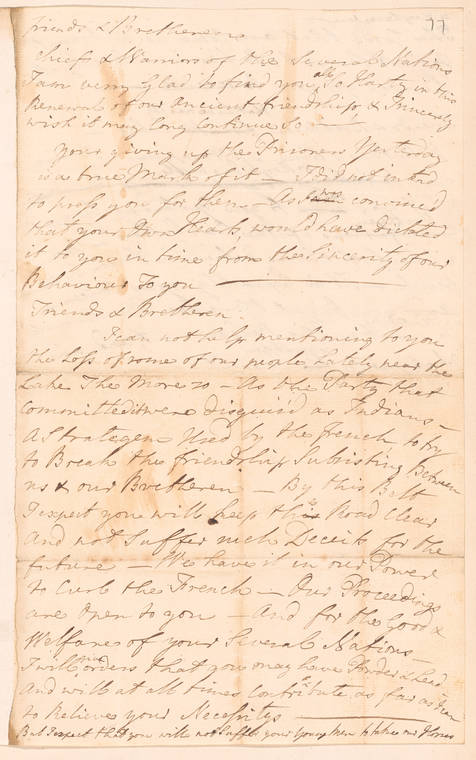 77
friends & Bretherens
chiefs & Warriors of the Several Nations
I am verry Glad to find you all So Harty in this
Renewal of our Ancient friendship & Sincerely
wish it may long Continue So
your giving up the Prisoners Yesterday
is a true Mark of it — I did not intend
to press you for them — As I was convinced
that your Own Hearts, would have dictated
it to you in time from the Sincerity of our
Behaviour To you
Friends & Bretheren
I can not help mentioning to you
the Loss of some of our people Lately near the
Lake The More so — As the Party that
Committed it were disguis'd as Indians —
A Strategen Used by the french to try
to Break the friendship Subsisting Between
us & our Bretheren — By this Belt
I expect you will keep the Road Clear
And not Suffer such Deceits for the
future — We have it in our Power
to Curb the French — Our Proceedings
are Open to you — And for the Good &
Welfare of your Several Nations —
I will give orders that you may have Powder & Lead
And will at all times Contribute as far as I can
to Relieve your Necessites
But I expect that you will not Suffer your young Men to take our Horses